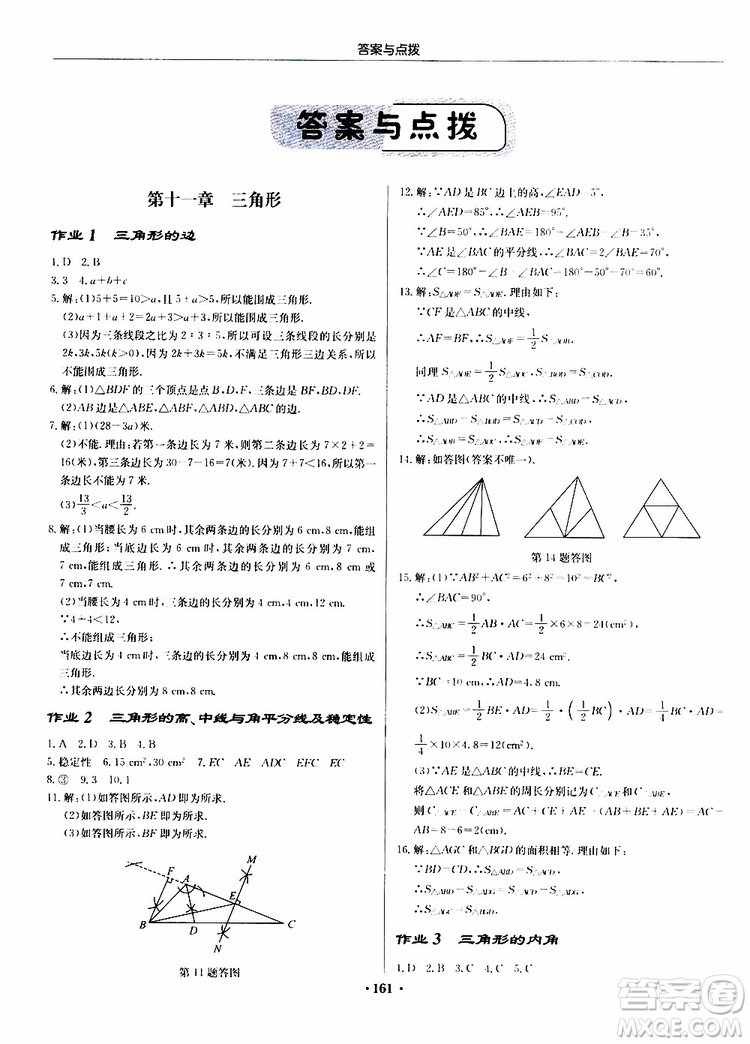 答案与点拨
答案与点拨
第十一章 三角形
作业1 三角形的边
1.D 2.B
3.3 4.a+b+c
5.解:(1)5+5=10>a,且5-5<a,所以能围成三角形.
(2)a+1+a+2>a+3,所以能围成三角形.
(3)因为三条线段之比为2∶3∶5,所以可设三条线段的长分别为
2k,3k,5k(k>0),则2k+3k=5k,不满足三角形三边关系,所以
不能围成三角形.
6.解:(1)△BDF的三个顶点是点B,D,F,三条边是BF,BD,DF.
(2)AB边是△ABE,△ABF,△ABD,△ABC的边.
7.解:(1)(28-3a)米.
(2)不能.理由:若第一条边长为7米,则第二条边长为7×2+2=
16(米),第三条边长为30-7-16=7(米).∵7+7<16,∴第一
条边长不能为7米.
(3)13/3<a<13/2.
8.解:(1)当腰长为6 cm时,其余两边的长分别为6 cm,8 cm,能组
成三角形;当底边长为6 cm时,其余两条边的长分别为7 cm,
7 cm,能组成三角形.∴其余两条边的长分别为6 cm,8 cm或
7 cm,7 cm.
(2)当腰长为4 cm时,三条边的长分别为4 cm,4 cm,12 cm.
∵4+4<12,
∴不能组成三角形;
当底边长为4 cm时,三条边的长分别为4 cm,8 cm,8 cm,能组
成三角形.
∴其余两边长分别为8 cm,8 cm.
作业2 三角形的高、中线与角平分线及稳定性
1.A 2.D 3.D 4.B
5.稳定性 6.15 cm²,30 cm² 7.EC AE ADC EFC EC
8.③ 9.3 10.1
11.解:(1)如答图所示,AD即为所求.
(2)如答图所示,BF即为所求.
(3)如答图所示,BE即为所求.
F A M
E
B D C
N
第11题答图
12.解:∵AD是BC边上的高,∠EAD=5°,
∴∠AED=85°,∴∠AEB=95°.
∵∠B=50°,∴∠BAE=180°-∠B-∠AEB=35°.
∵AE是∠BAC的平分线,∴∠BAC=2∠BAE=70°,
∴∠C=180°-∠B-∠BAC=60°.
13.解:S△AOF=S△AOE.理由如下:
∵CF是△ABC的中线,
∴AF=BF,∴S△AOF=1/2 S△AOB.
同理S△AOE=1/2 S△AOC.
∵AD是△ABC的中线,
∴S△ABD-S△BOD=S△ACD-S△COD,
∴S△AOB=S△AOC,∴S△AOF=S△AOE.
14.解:如答图(答案不唯一).
第14题答图
15.解:(1)∵AB²+AC²=6²+8²=10²=BC²,
∴∠BAC=90°.
∴S△ABC=1/2 AB·AC=1/2×6×8=24 cm².
∴S△ABC=1/2 BC·AD=24 cm².
∵BC=10 cm,∴AD=4.8 cm.
(2)S△ABE=1/2 BE·AD=1/2·(1/2 BC)·AD=1/2×1/2×10×
4.8=12(cm²).
(3)∵AE是△ABC的中线,∴BE=CE.
将△ACE和△ABE的周长分别记为C△ACE和C△ABE,
则C△ACE-C△ABE=AC+CE+AE-(AB+BE+AE)=AC-
AB=8-6=2(cm).
16.解:△AGC和△BGD的面积相等.理由如下:
∵BD=CD,∴S△ABD=S△ACD,
∴S△ABD-S△ADG=S△ACD-S△ADG,
∴S△AGC=S△BGD.
作业3 三角形的内角
1.D 2.B 3.C 4.C 5.C
161
答案圈
MXQE.COM